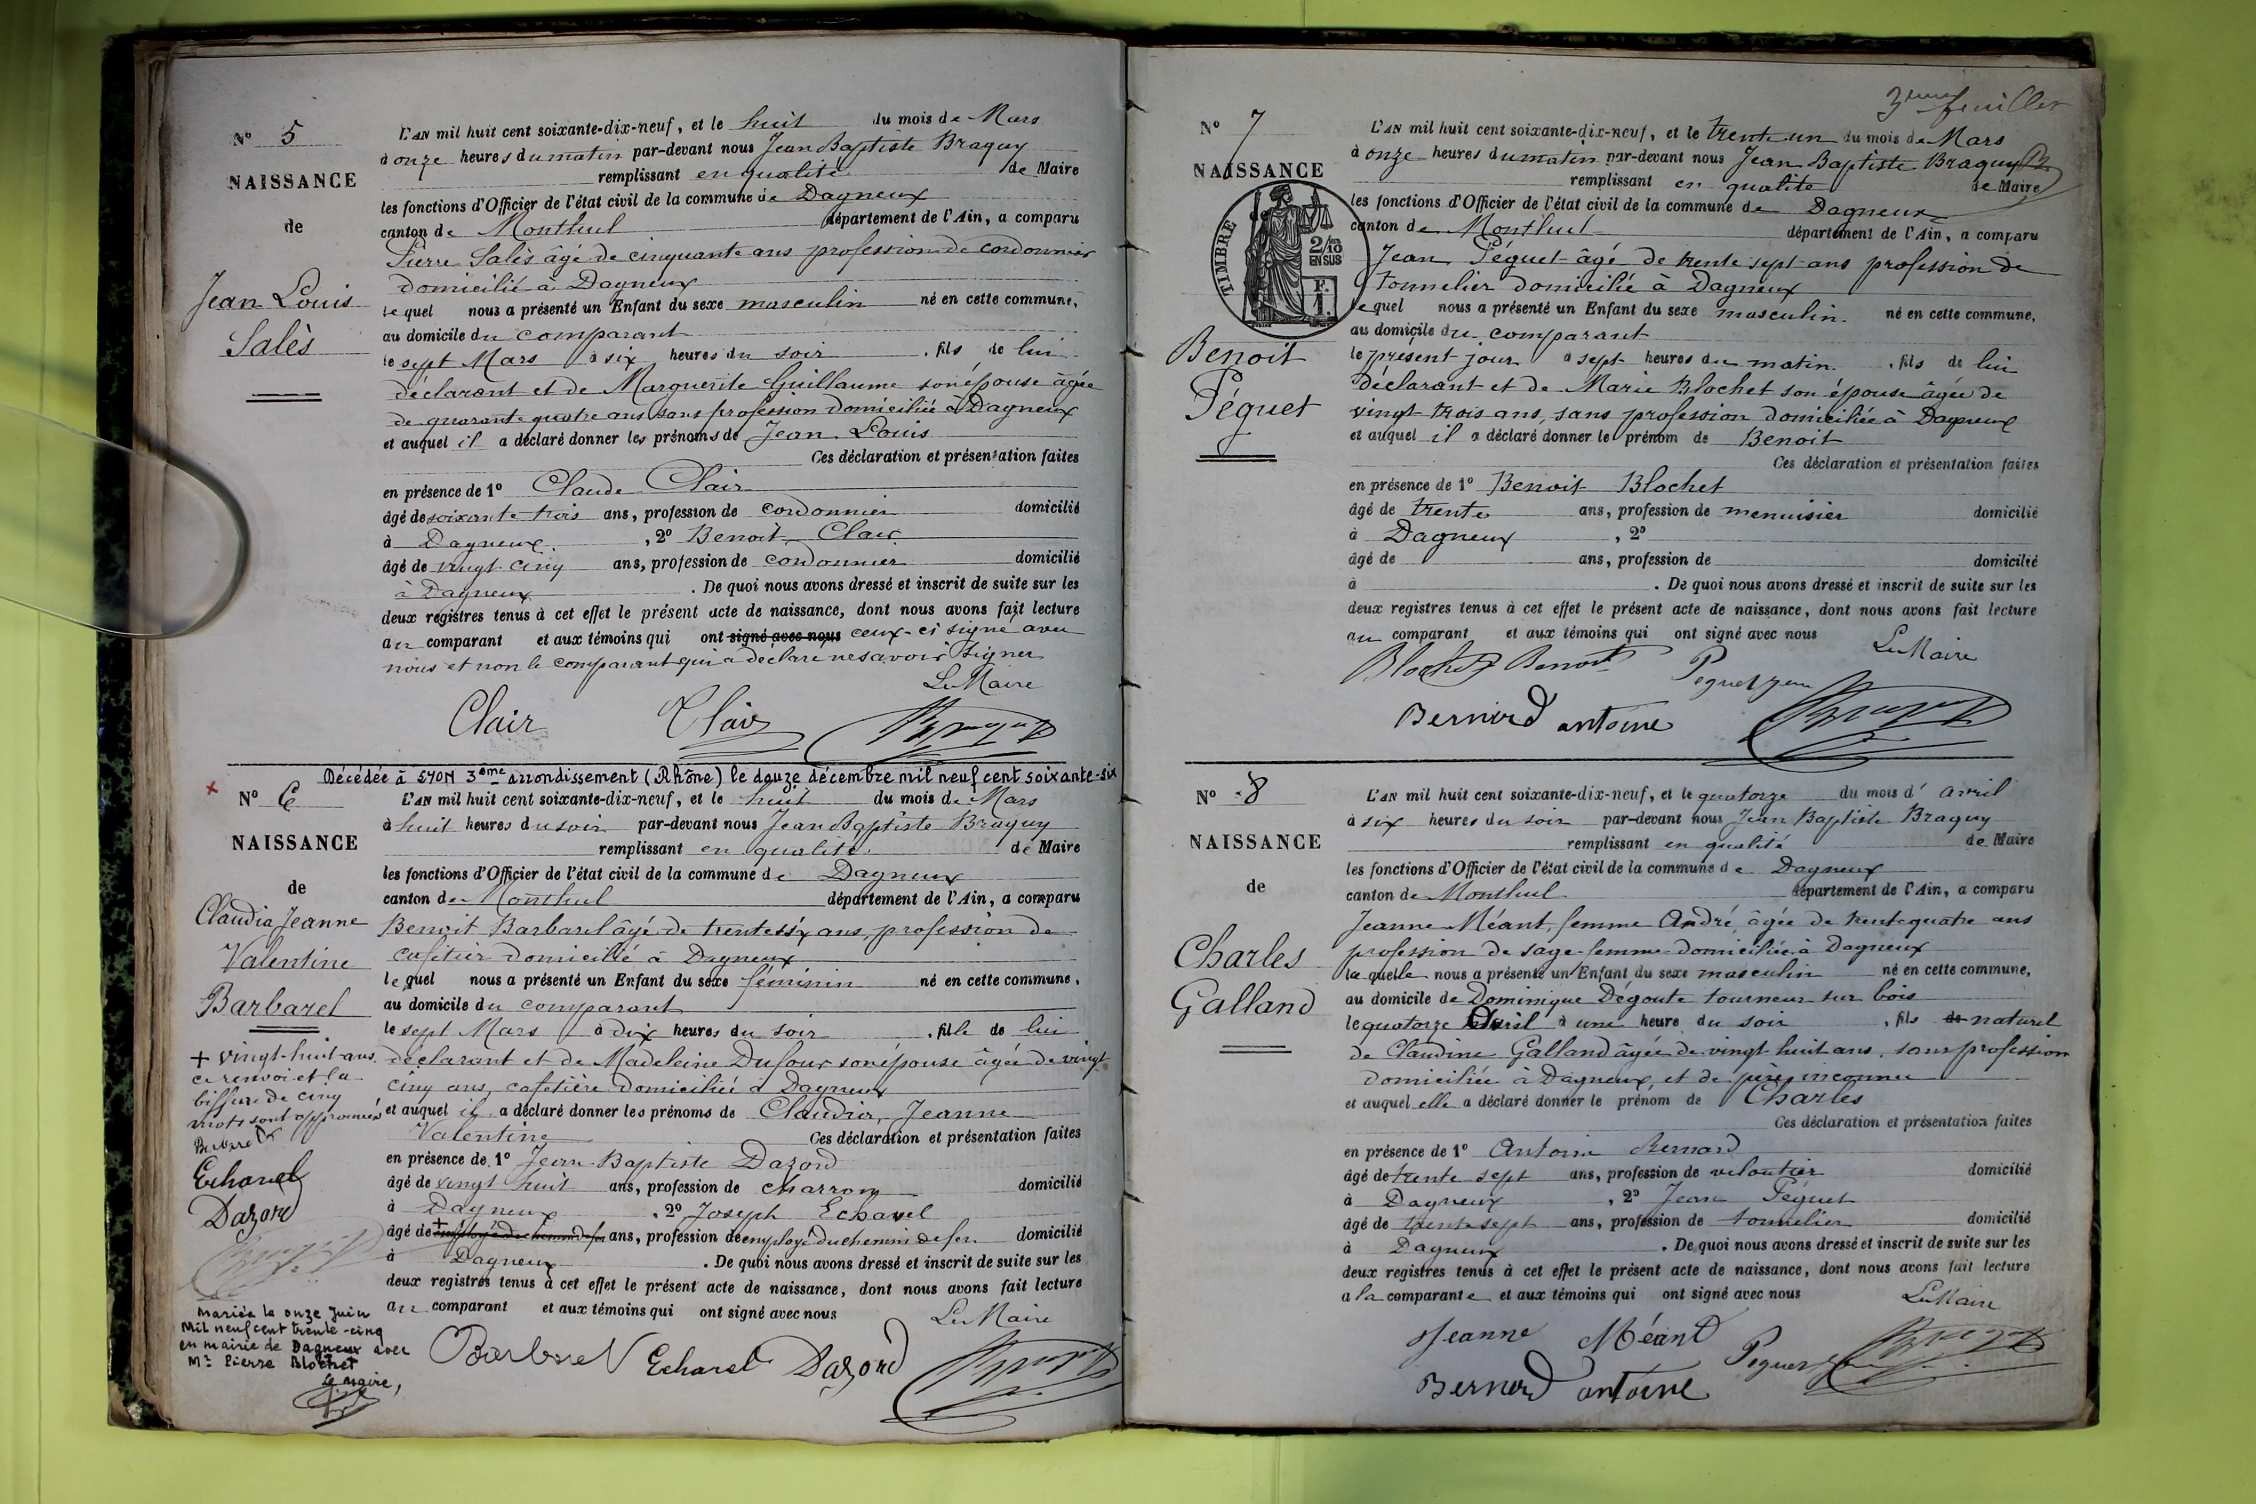 N° 5
NAISSANCE
de
Jean Louis
Salès
L'AN mil huit cent soixante-dix-neuf, et le huit du mois de Mars
à onze heures du matin par-devant nous Jean Baptiste Braguy
remplissant en qualité de Maire
les fonctions d'Officier de l'état civil de la commune de Dagneux
canton de Montluel département de l'Ain, a comparu
Pierre Salès âgé de cinquante ans profession de cordonnier
domicilié à Dagneux
le quel nous a présenté un Enfant du sexe masculin né en cette commune,
au domicile du comparant
le sept Mars à six heures du soir, fils de lui
déclarant et de Marguerite Guillaume son épouse âgée
de quarante quatre ans sans profession domiciliée à Dagneux
et auquel il a déclaré donner les prénoms de Jean Louis
Ces déclaration et présentation faites
en présence de 1° Claude Clair
âgé de soixante trois ans, profession de cordonnier domicilié
à Dagneux, 2° Benoit Clair
âgé de vingt cinq ans, profession de cordonnier domicilié
à Dagneux. De quoi nous avons dressé et inscrit de suite sur les
deux registres tenus à cet effet le présent acte de naissance, dont nous avons fait lecture
au comparant et aux témoins qui ont signé avec nous ceux-ci signé avec
nous et non le comparant qui a déclaré ne savoir signer
Le Maire
Clair Clair
Décédée à LYON 3ème arrondissement (Rhône) le douze décembre mil neuf cent soixante-six
N° 6
NAISSANCE
de
Claudia Jeanne
Valentine
Barbarel
+ vingt-huit ans
ce renvoi et la
biffure de cinq
mots sont approuvés
Barbarel
Echavel
Dazord
Mariée le onze Juin
mil neuf cent trente-cinq
en mairie de Dagneux avec
Mr Pierre Blochet
Le maire,
L'AN mil huit cent soixante-dix-neuf, et le huit du mois de Mars
à huit heures du soir par-devant nous Jean Baptiste Braguy
remplissant en qualité de Maire
les fonctions d'Officier de l'état civil de la commune de Dagneux
canton de Montluel département de l'Ain, a comparu
Benoit Barbarel âgé de trente six ans, profession de
cafetier domicilié à Dagneux
le quel nous a présenté un Enfant du sexe féminin né en cette commune,
au domicile du comparant
le sept Mars à dix heures du soir, fille de lui
déclarant et de Madeleine Dufour son épouse âgée de vingt
cinq ans, cafetière domiciliée à Dagneux
et auquel il a déclaré donner les prénoms de Claudia, Jeanne
Valentine Ces déclaration et présentation faites
en présence de 1° Jean Baptiste Dazord
âgé de vingt huit ans, profession de charron domicilié
à Dagneux, 2° Joseph Echavel
âgé de + employé du chemin de fer ans, profession de employé du chemin de fer domicilié
à Dagneux. De quoi nous avons dressé et inscrit de suite sur les
deux registres tenus à cet effet le présent acte de naissance, dont nous avons fait lecture
au comparant et aux témoins qui ont signé avec nous
Le Maire
Barbarel Echavel Dazord
3ème feuillet
N° 7
NAISSANCE
TIMBRE
2/10
EN SUS
F.
1.
Benoit
Péguet
L'AN mil huit cent soixante-dix-neuf, et le trente un du mois de Mars
à onze heures du matin par-devant nous Jean Baptiste Braguy
remplissant en qualité de Maire
les fonctions d'Officier de l'état civil de la commune de Dagneux
canton de Montluel département de l'Ain, a comparu
Jean Péguet âgé de trente sept ans profession de
tonnelier domicilié à Dagneux
le quel nous a présenté un Enfant du sexe masculin né en cette commune,
au domicile du comparant
le présent jour à sept heures du matin, fils de lui
déclarant et de Marie Blochet son épouse âgée de
vingt trois ans, sans profession domiciliée à Dagneux
et auquel il a déclaré donner le prénom de Benoit
Ces déclaration et présentation faites
en présence de 1° Benoit Blochet
âgé de trente ans, profession de menuisier domicilié
à Dagneux, 2°
âgé de ans, profession de domicilié
à . De quoi nous avons dressé et inscrit de suite sur les
deux registres tenus à cet effet le présent acte de naissance, dont nous avons fait lecture
au comparant et aux témoins qui ont signé avec nous
Le Maire
Blochet Benoit Peguet Jean
Bernard antoine
N° 8
NAISSANCE
de
Charles
Galland
L'AN mil huit cent soixante-dix-neuf, et le quatorze du mois d'avril
à six heures du soir par-devant nous Jean Baptiste Braguy
remplissant en qualité de Maire
les fonctions d'Officier de l'état civil de la commune de Dagneux
canton de Montluel département de l'Ain, a comparu
Jeanne Méant, femme André, âgée de trente quatre ans
profession de sage-femme domiciliée à Dagneux
la quelle nous a présenté un Enfant du sexe masculin né en cette commune,
au domicile de Dominique Dégoute tourneur sur bois
le quatorze Avril à une heure du soir, fils de naturel
de Claudine Galland âgée de vingt huit ans, sans profession
domiciliée à Dagneux, et de père inconnu
et auquel elle a déclaré donner le prénom de Charles
Ces déclaration et présentation faites
en présence de 1° Antoine Bernard
âgé de trente sept ans, profession de veloutier domicilié
à Dagneux, 2° Jean Péguet
âgé de trente sept ans, profession de tonnelier domicilié
à Dagneux. De quoi nous avons dressé et inscrit de suite sur les
deux registres tenus à cet effet le présent acte de naissance, dont nous avons fait lecture
a la comparante et aux témoins qui ont signé avec nous
Le Maire
Jeanne Méant Peguet Jean
Bernard antoine